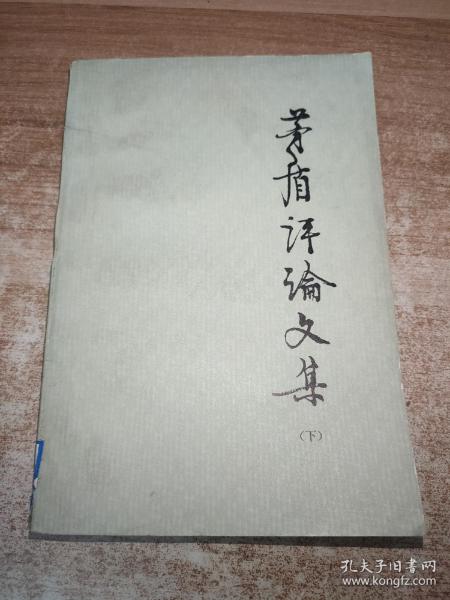 茅盾评论文集
（下）
孔夫子旧书网
www.kongfz.com